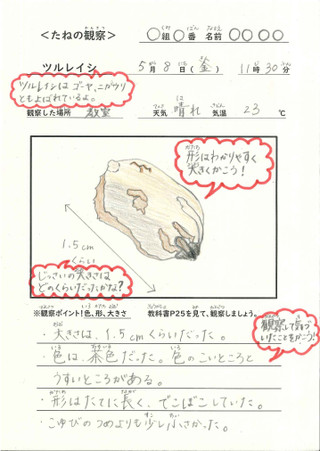 <たねの観察>
〇組〇番 名前 〇〇〇〇
ツルレイシ
5月8日(金) 11時30分
ツルレイシはゴーヤ、ニガウリ
ともよばれているよ。
観察した場所 教室
天気 晴れ 気温 23 ℃
形はわかりやすく
大きくかこう!
1.5cm
くらい
じっさいの大きさは
どのくらいだったかな?
※観察ポイント!色、形、大きさ 教科書P25を見て、観察しましょう。
観察して気づ
いたことをかこう!
・大きさは、1.5cmくらいだった。
・色は、茶色だった。色のこいところと
うすいところがある。
・形はたてに長く、でこぼこしていた。
・こゆびのつめよりも少し小さかった。